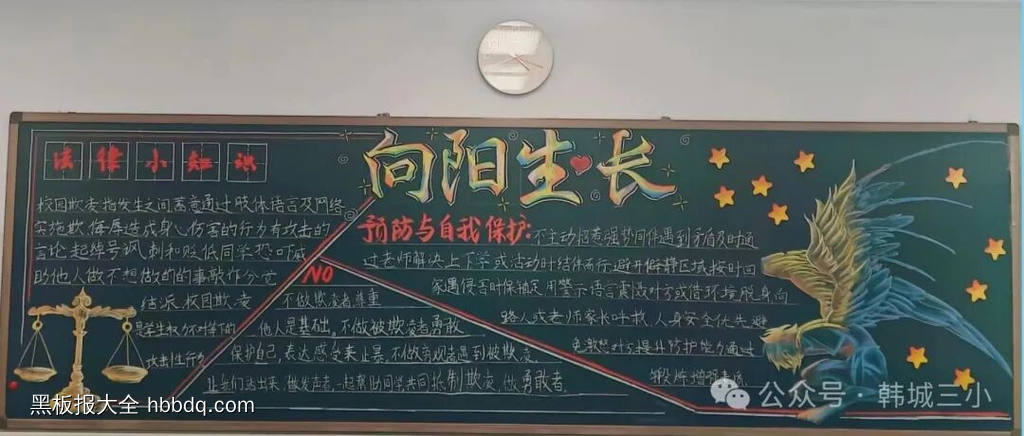 法律小知识
向阳生长
校园欺凌指发生之间蓄意通过肢体语言及网络
实施欺侮辱造成身心伤害的行为有攻击的
言论起绰号讽刺和贬低同学恐吓威
助他人做不想做的的事敲诈分党
结派校园欺凌
攻击性行为
预防与自我保护:不主动招惹强势同伴遇到矛盾及时通
过老师解决上下学或活动时结伴而行避开僻静区域按时回
家遇侵害时保持足用警示语言震慑对方或借环境脱身向
路人或老师家长呼救人身安全优先避
免激怒对方提升防护能力通过
锻炼增强
NO
不做欺凌者尊重
他人是基础,不做被欺凌者勇敢
保护自己,表达感受来止暴,不做旁观者遇到被欺凌
让我们达出来,做发声者一起帮助同学共同抵制欺凌,做勇敢者
黑板报大全 hbbdq.com
公众号·韩城三小